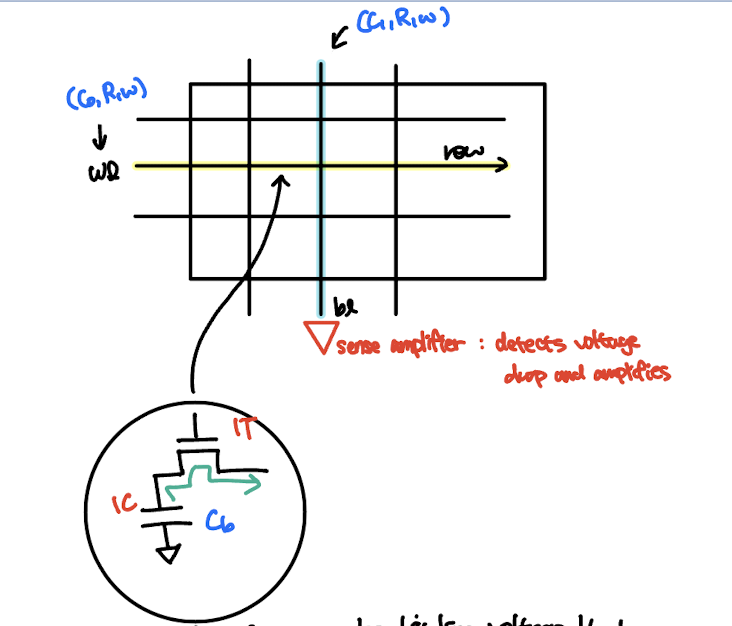 (C1,R,W)
(C0,R,W)
row
bl
sense amplifier : detects voltage
drop and amplifies
1T
1C
Cb
voltage